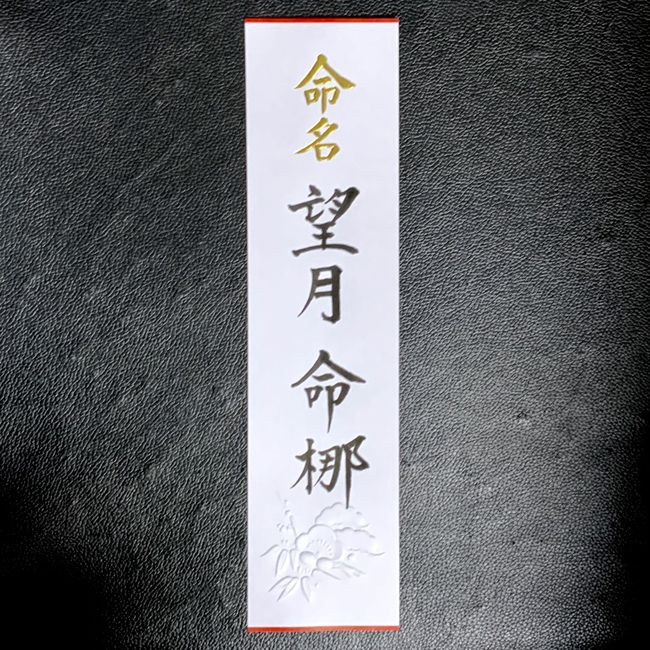 命名
望月 命梛